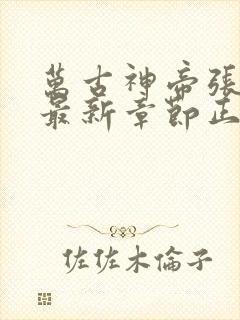 萬古神帝張
最新章節正
佐佐木倫子